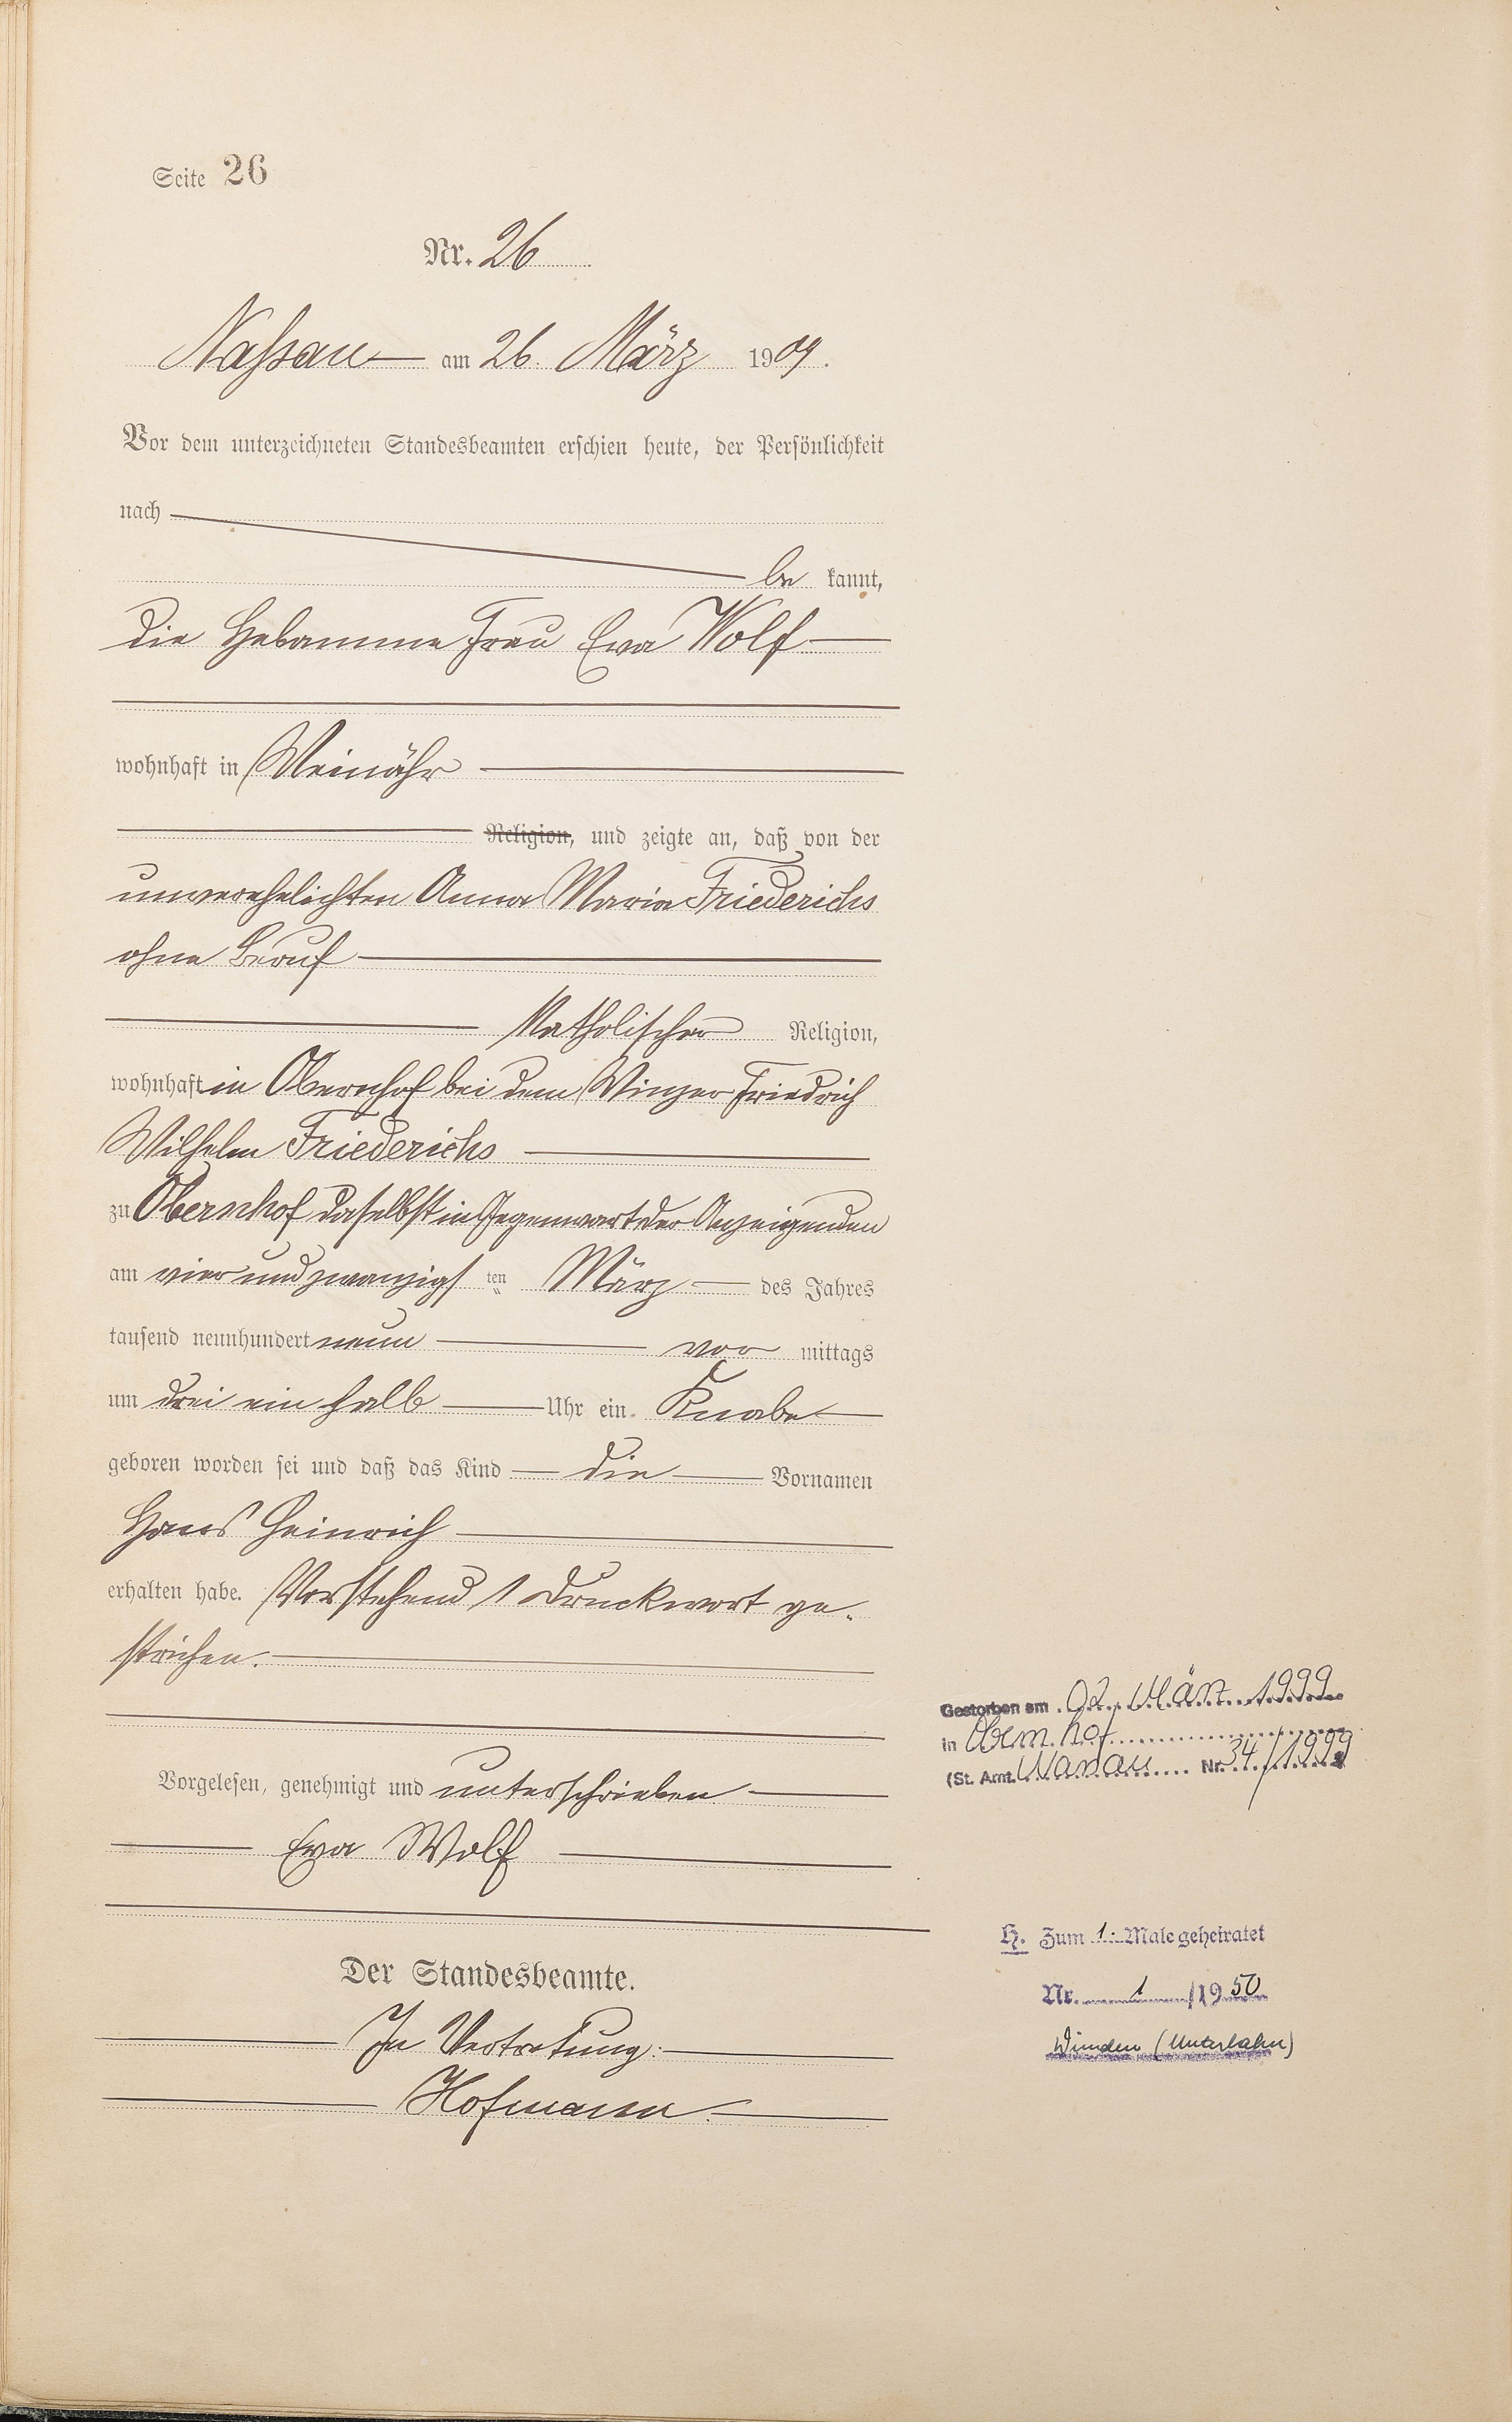 Seite 26
Nr. 26
Nassau am 26. März 1909.
Vor dem unterzeichneten Standesbeamten erschien heute, der Persönlichkeit
nach
be kannt,
die Hebamme Frau Eva Wolf
wohnhaft in Weinähr
Religion, und zeigte an, daß von der
unverehelichten Anna Maria Friederichs
ohne Beruf
Katholischer Religion,
wohnhaft in Obernhof bei dem Winzer Friedrich
Wilhelm Friederichs
zu Obernhof daselbst in Gegenwart der Anzeigenden
am vier und zwanzigsten März des Jahres
tausend neunhundert neun vor mittags
um drei ein halb Uhr ein Knabe
geboren worden sei und daß das Kind die Vornamen
Hans Heinrich
erhalten habe. Vorstehend 1 Druckwort ge-
strichen.
Vorgelesen, genehmigt und unterschrieben
Eva Wolf
Der Standesbeamte.
In Vertretung:
Hofmann.
Gestorben am 02. März 1999
in Obernhof
(St. Amt Nassau Nr. 34/1999
H. Zum 1. Male geheiratet
Nr. 1/1950
(Unterlahn)